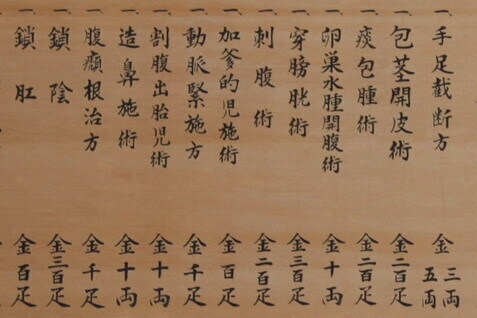 一、手足截断方 金 三両 五両
一、包茎開皮術 金二百疋
一、痰包腫術 金二百疋
一、卵巣水腫開腹術 金十両
一、穿膀胱術 金三百疋
一、刺腹術 金二百疋
一、加爹的児施術 金百疋
一、動脈緊施方 金千疋
一、割腹出胎児術 金十両
一、造鼻施術 金十両
一、腹癩根治方 金千疋
一、鎖陰 金三百疋
一、鎖肛 金百疋